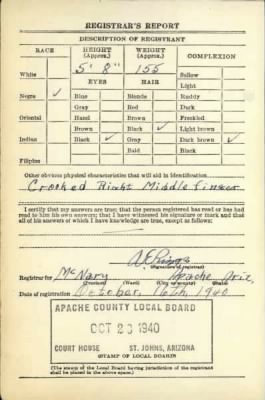 REGISTRAR'S REPORT
DESCRIPTION OF REGISTRANT
RACE HEIGHT (Approx.) WEIGHT (Approx.) COMPLEXION
5' 8" 155
White Sallow
EYES HAIR Light
Negro ✓ Blue Blonde Ruddy
Gray Red Dark
Oriental Hazel Brown Freckled
Brown Black ✓ Light brown
Indian Black ✓ Gray Dark brown ✓
Bald Black
Filipino
Other obvious physical characteristics that will aid in identification
Crooked Right Middle finger
I certify that my answers are true; that the person registered has read or has had read to him his own answers; that I have witnessed his signature or mark and that all of his answers of which I have knowledge are true, except as follows:
(Signature of registrar)
Registrar for McNary Apache Ariz.
(Precinct) (Ward) (City or county) (State)
Date of registration October 16th, 1940
APACHE COUNTY LOCAL BOARD
OCT 23 1940
COURT HOUSE ST. JOHNS, ARIZONA
(STAMP OF LOCAL BOARD)
(The stamp of the Local Board having jurisdiction of the registrant shall be placed in the above space.)